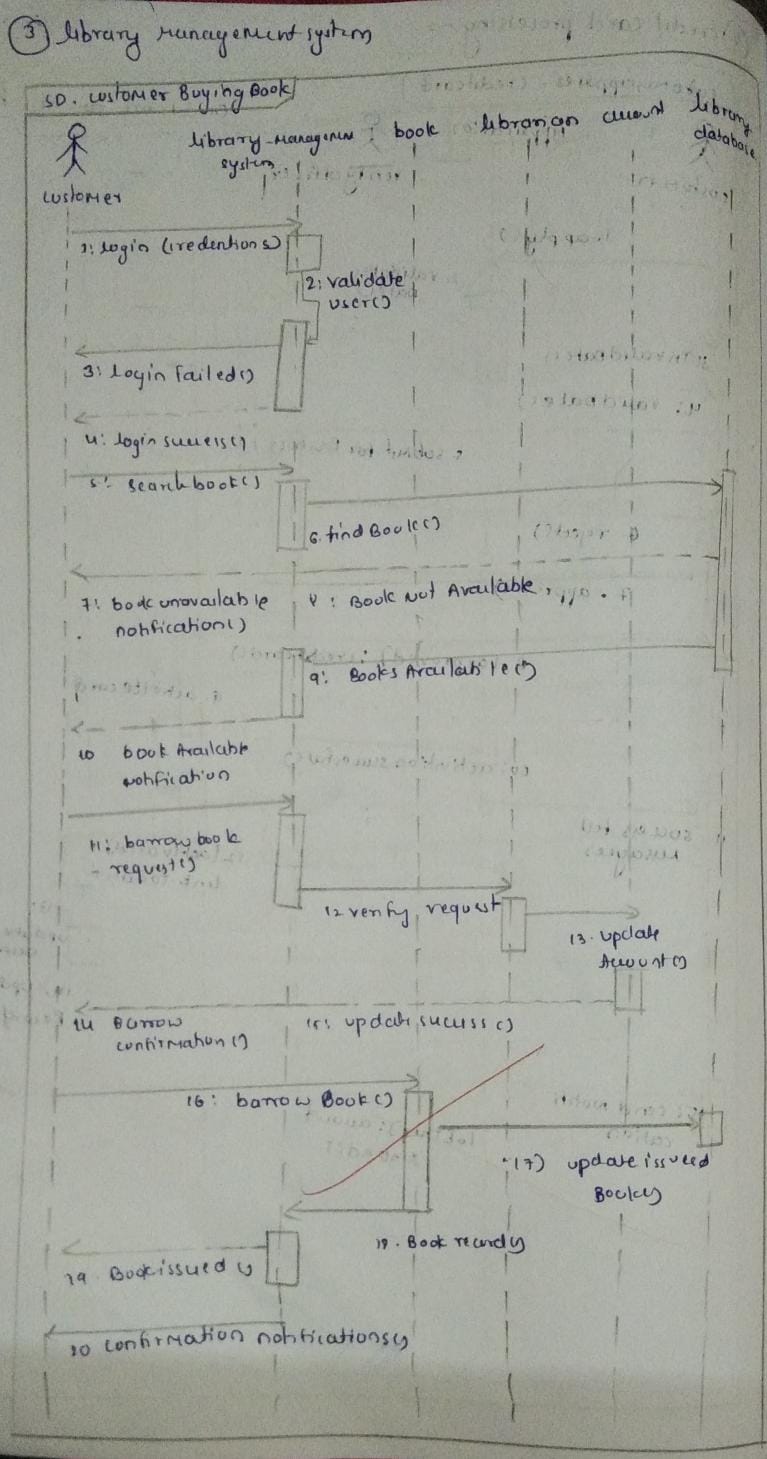 ③ library management system
SD. customer Buying Book
library-Managemen : book librarian library
system database
customer
1: login (credentions)
2: validate
user()
3: login Failed()
4: login success()
5: search book()
6. find Book()
7: book unavailable 8: Book Not Available
notification()
9: Books Available()
10 book Available
notification
11: barrow book
request()
12 verify request
13. update
Account()
14 Borrow 15: update, success()
confirmation()
16: barrow Book()
17) update issued
Book()
18. Book record()
19. Book issued()
20 confirmation notifications()